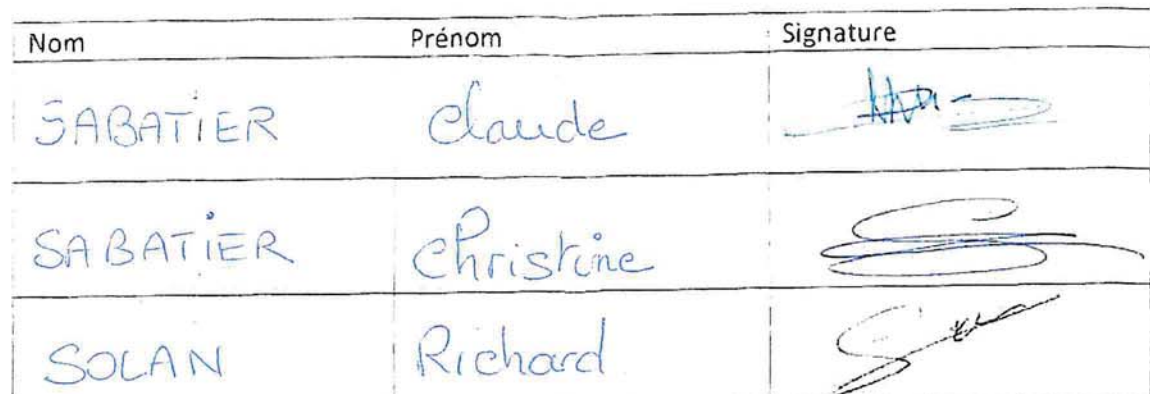 Nom Prénom Signature
SABATIER Claude
SABATIER Christine
SOLAN Richard